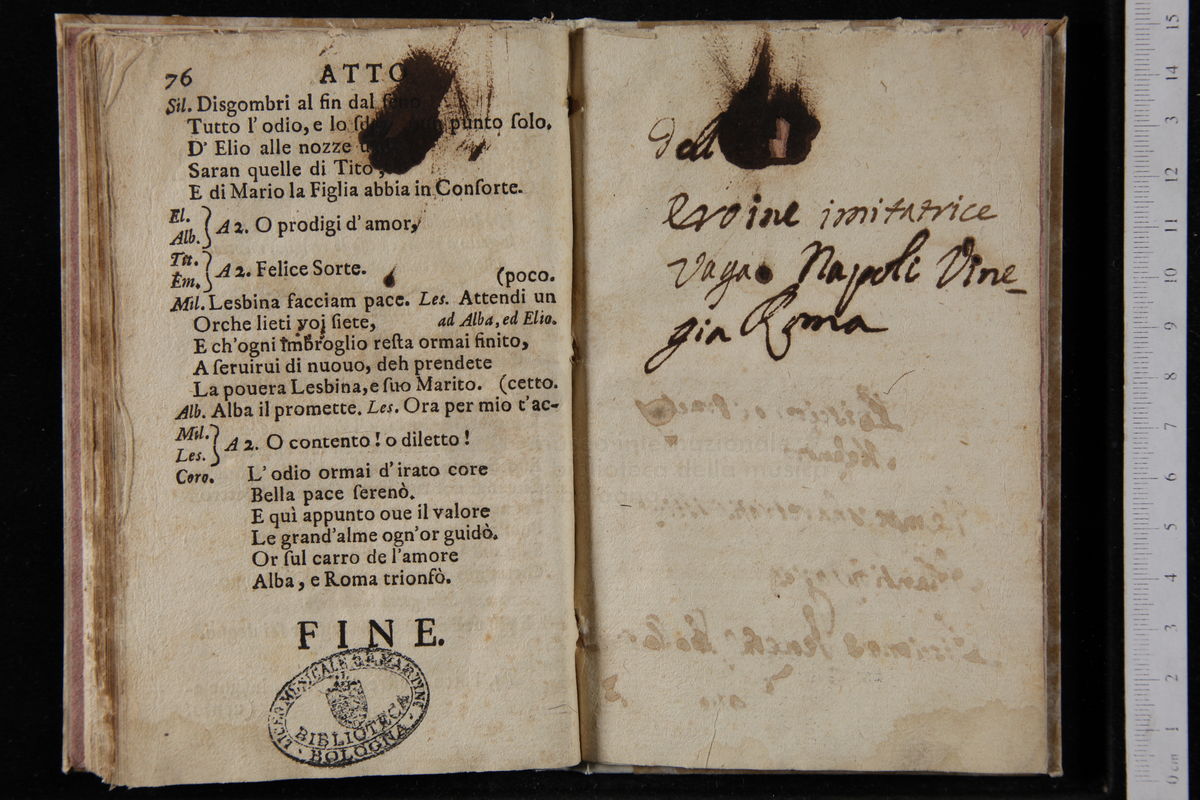 76 ATTO
Sil. Disgombri al fin dal seno
Tutto l'odio, e lo punto solo.
D' Elio alle nozze
Saran quelle di Tito,
E di Mario la Figlia abbia in Consorte.
El.
Alb. } A 2. O prodigi d'amor,
Tit.
Em. } A 2. Felice Sorte. (poco.
Mil. Lesbina facciam pace. Les. Attendi un
Orche lieti voi siete, ad Alba, ed Elio.
E ch'ogni imbroglio resta ormai finito,
A seruirui di nuouo, deh prendete
La pouera Lesbina, e suo Marito. (cetto.
Alb. Alba il promette. Les. Ora per mio t'ac-
Mil.
Les. } A 2. O contento! o diletto!
Coro. L'odio ormai d'irato core
Bella pace serenò.
E quì appunto oue il valore
Le grand'alme ogn'or guidò.
Or sul carro de l'amore
Alba, e Roma trionfò.
FINE.
LICEO MUSICALE G.B. MARTINI
BIBLIOTECA
BOLOGNA
dell
Eroine imitatrice
Vaga Napoli Vine-
gia Roma
15
14
3
12
11
10
9
8
7
6
5
4
3
2
1
0 cm